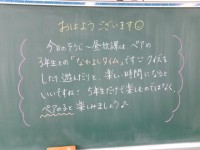 おはようございます☺
今日のそうじ〜昼放課は、ペアの
3年生との「なかよしタイム」です♡クイズを
したり遊んだりと、楽しい時間になると
いいですね! 5年生だけで楽しむのではなく、
ペアの子と楽しみましょう♪